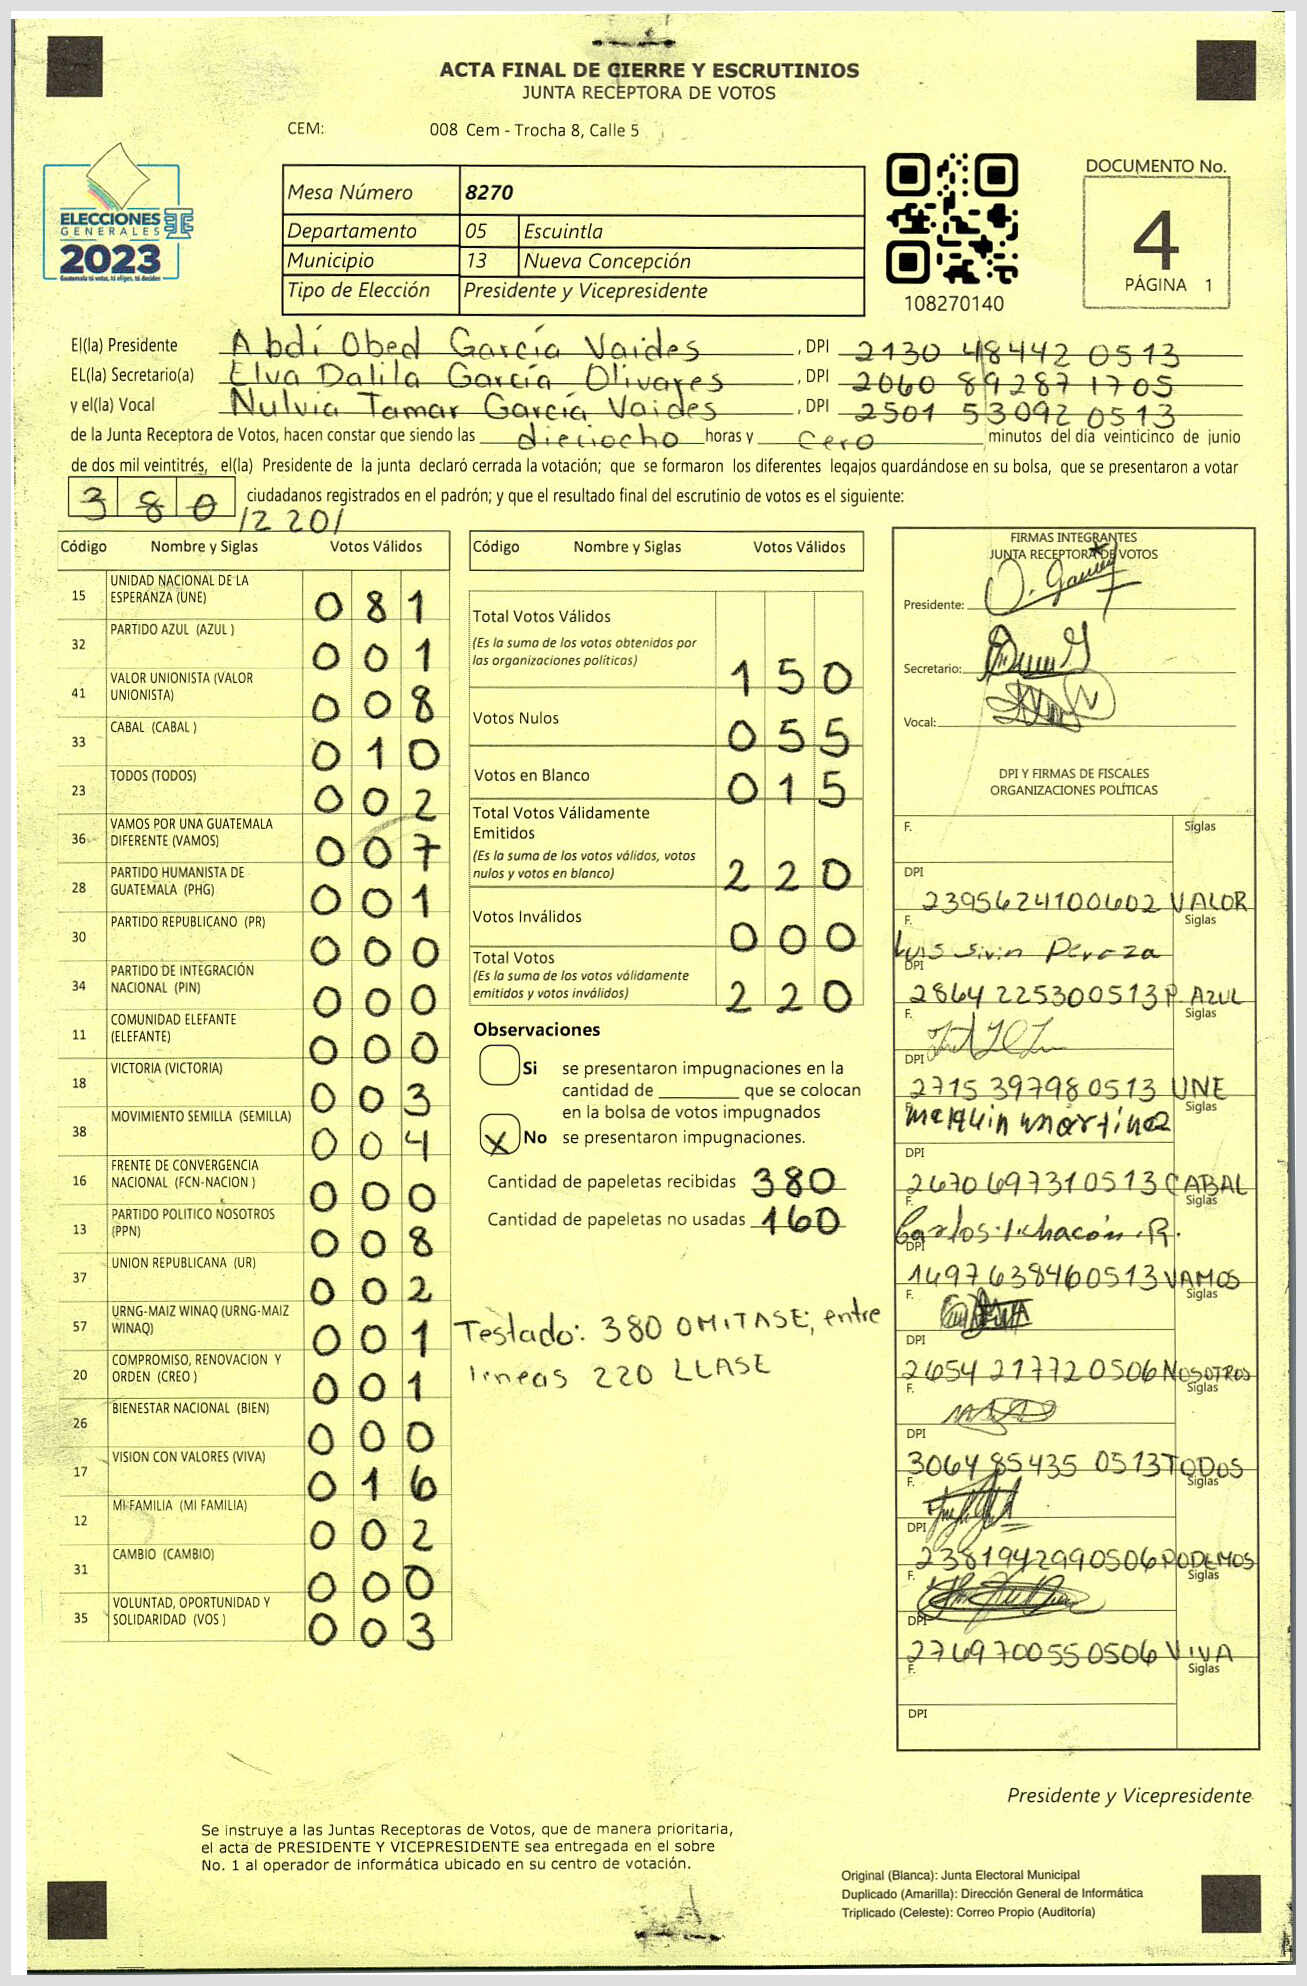 ACTA FINAL DE CIERRE Y ESCRUTINIOS
JUNTA RECEPTORA DE VOTOS
CEM: 008 Cem - Trocha 8, Calle 5
ELECCIONES
GENERALES
2023
Guatemala tú votas, tú eliges, tú decides
Mesa Número 8270
Departamento 05 Escuintla
Municipio 13 Nueva Concepción
Tipo de Elección Presidente y Vicepresidente
108270140
DOCUMENTO No.
4
PÁGINA 1
El(la) Presidente Abdí Obed García Vaides , DPI 2130 48442 0513
EL(la) Secretario(a) Elva Dalila García Olivares , DPI 2060 89287 1705
y el(la) Vocal Nulvia Tamar García Vaides , DPI 2501 53092 0513
de la Junta Receptora de Votos, hacen constar que siendo las dieciocho horas y cero minutos del día veinticinco de junio
de dos mil veintitrés, el(la) Presidente de la junta declaró cerrada la votación; que se formaron los diferentes legajos guardándose en su bolsa, que se presentaron a votar
380 ciudadanos registrados en el padrón; y que el resultado final del escrutinio de votos es el siguiente:
/220/
Código Nombre y Siglas Votos Válidos
15 UNIDAD NACIONAL DE LA ESPERANZA (UNE) 081
32 PARTIDO AZUL (AZUL ) 001
41 VALOR UNIONISTA (VALOR UNIONISTA) 008
33 CABAL (CABAL ) 010
23 TODOS (TODOS) 002
36 VAMOS POR UNA GUATEMALA DIFERENTE (VAMOS) 007
28 PARTIDO HUMANISTA DE GUATEMALA (PHG) 001
30 PARTIDO REPUBLICANO (PR) 000
34 PARTIDO DE INTEGRACIÓN NACIONAL (PIN) 000
11 COMUNIDAD ELEFANTE (ELEFANTE) 000
18 VICTORIA (VICTORIA) 003
38 MOVIMIENTO SEMILLA (SEMILLA) 004
16 FRENTE DE CONVERGENCIA NACIONAL (FCN-NACION ) 000
13 PARTIDO POLITICO NOSOTROS (PPN) 008
37 UNION REPUBLICANA (UR) 002
57 URNG-MAIZ WINAQ (URNG-MAIZ WINAQ) 001
20 COMPROMISO, RENOVACION Y ORDEN (CREO ) 001
26 BIENESTAR NACIONAL (BIEN) 000
17 VISION CON VALORES (VIVA) 016
12 MI FAMILIA (MI FAMILIA) 002
31 CAMBIO (CAMBIO) 000
35 VOLUNTAD, OPORTUNIDAD Y SOLIDARIDAD (VOS ) 003
Código Nombre y Siglas Votos Válidos
Total Votos Válidos
(Es la suma de los votos obtenidos por
las organizaciones políticas) 150
Votos Nulos 055
Votos en Blanco 015
Total Votos Válidamente
Emitidos
(Es la suma de los votos válidos, votos
nulos y votos en blanco) 220
Votos Inválidos 000
Total Votos
(Es la suma de los votos válidamente
emitidos y votos inválidos) 220
Observaciones
Si se presentaron impugnaciones en la
cantidad de ________ que se colocan
en la bolsa de votos impugnados
X No se presentaron impugnaciones.
Cantidad de papeletas recibidas 380
Cantidad de papeletas no usadas 160
Testado: 380 OMITASE; entre
lineas 220 LLASE
FIRMAS INTEGRANTES
JUNTA RECEPTORA DE VOTOS
Presidente:
Secretario:
Vocal:
DPI Y FIRMAS DE FISCALES
ORGANIZACIONES POLÍTICAS
F. Siglas
DPI
2395624100602 VALOR
F. Siglas
Luis Peraza
DPI
2864 225300513 P. AZUL
F. Siglas
DPI
2715 39798 0513 UNE
F. Siglas
Melquin martinez
DPI
2670 697310513 CABAL
F. Siglas
Carlos Chacón R.
DPI
1497638460513 VAMOS
F. Siglas
DPI
2654 21772 0506 NOSOTROS
F. Siglas
DPI
3064 85435 0513 TODOS
F. Siglas
DPI
2381942990506 PODEMOS
F. Siglas
DPI
2769700550506 VIVA
F. Siglas
DPI
Presidente y Vicepresidente
Se instruye a las Juntas Receptoras de Votos, que de manera prioritaria,
el acta de PRESIDENTE Y VICEPRESIDENTE sea entregada en el sobre
No. 1 al operador de informática ubicado en su centro de votación.
Original (Blanca): Junta Electoral Municipal
Duplicado (Amarilla): Dirección General de Informática
Triplicado (Celeste): Correo Propio (Auditoría)